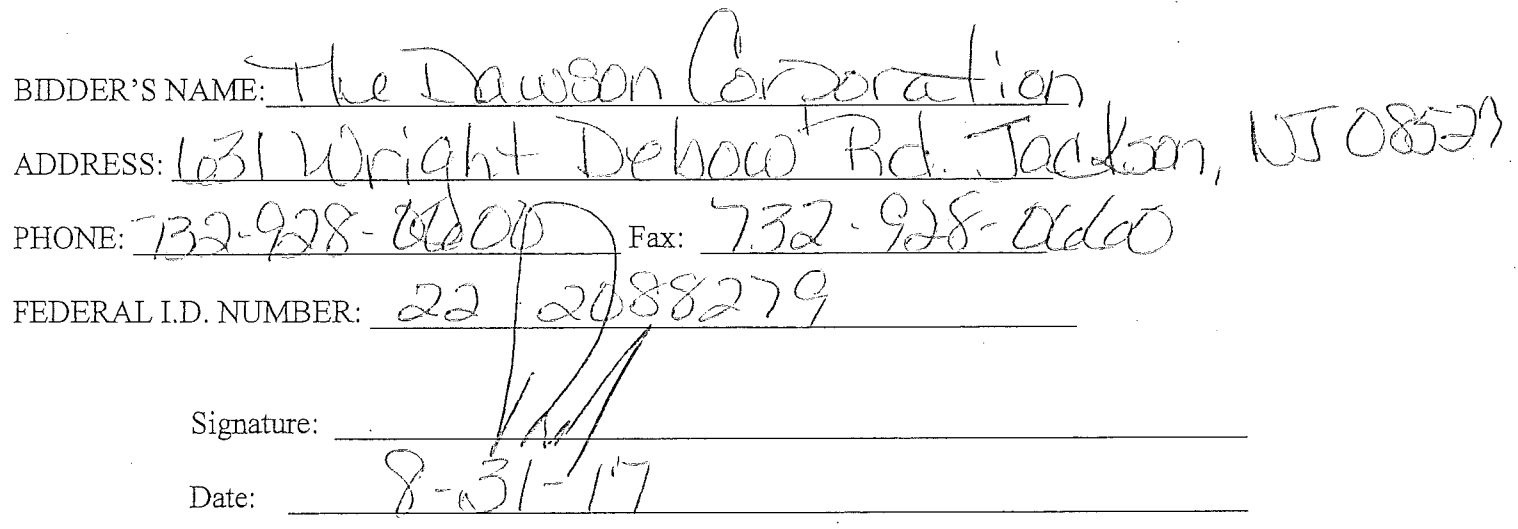 BIDDER'S NAME: The Dawson Corporation
ADDRESS: 631 Wright Debow Rd. Jackson, NJ 08527
PHONE: 732-928- Fax: 732-928-
FEDERAL I.D. NUMBER: 22 2088279
Signature:
Date: 8-31-17